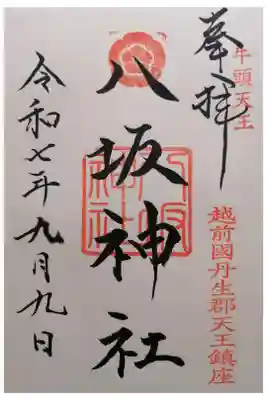 奉拝
牛頭天王
越前國丹生郡天王鎮座
八坂神社
令和七年九月九日